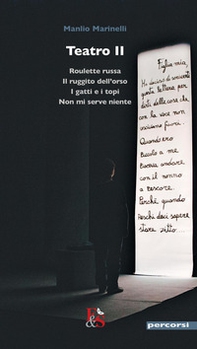 Manlio Marinelli
Teatro II
Roulette russa
Il ruggito dell'orso
I gatti e i topi
Non mi serve niente
Figlia mia,
Ho deciso di scriverti
questa lettera per
dirti delle cose che
con la voce non
uscivano fuori.
Quando ero
piccolo a me
piaceva andare
con il nonno
a pescare.
Perché quando
peschi devi sapere
stare zitto...
E&S
percorsi